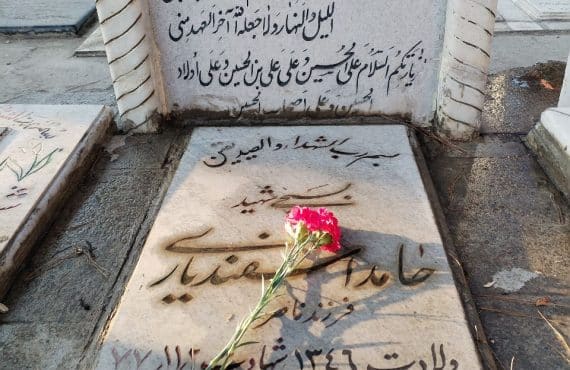 اللیل والنهار ولا جعله الله آخر العهد منی
زیارتکم السلام علی الحسین و علی علی بن الحسین و علی اولاد
الحسین و علی اصحاب الحسین
بسم رب الشهداء والصدیقین
شهید
حامد اسفندیاری
فرزند ناصر
ولادت ۱۳۴۶ شهادت